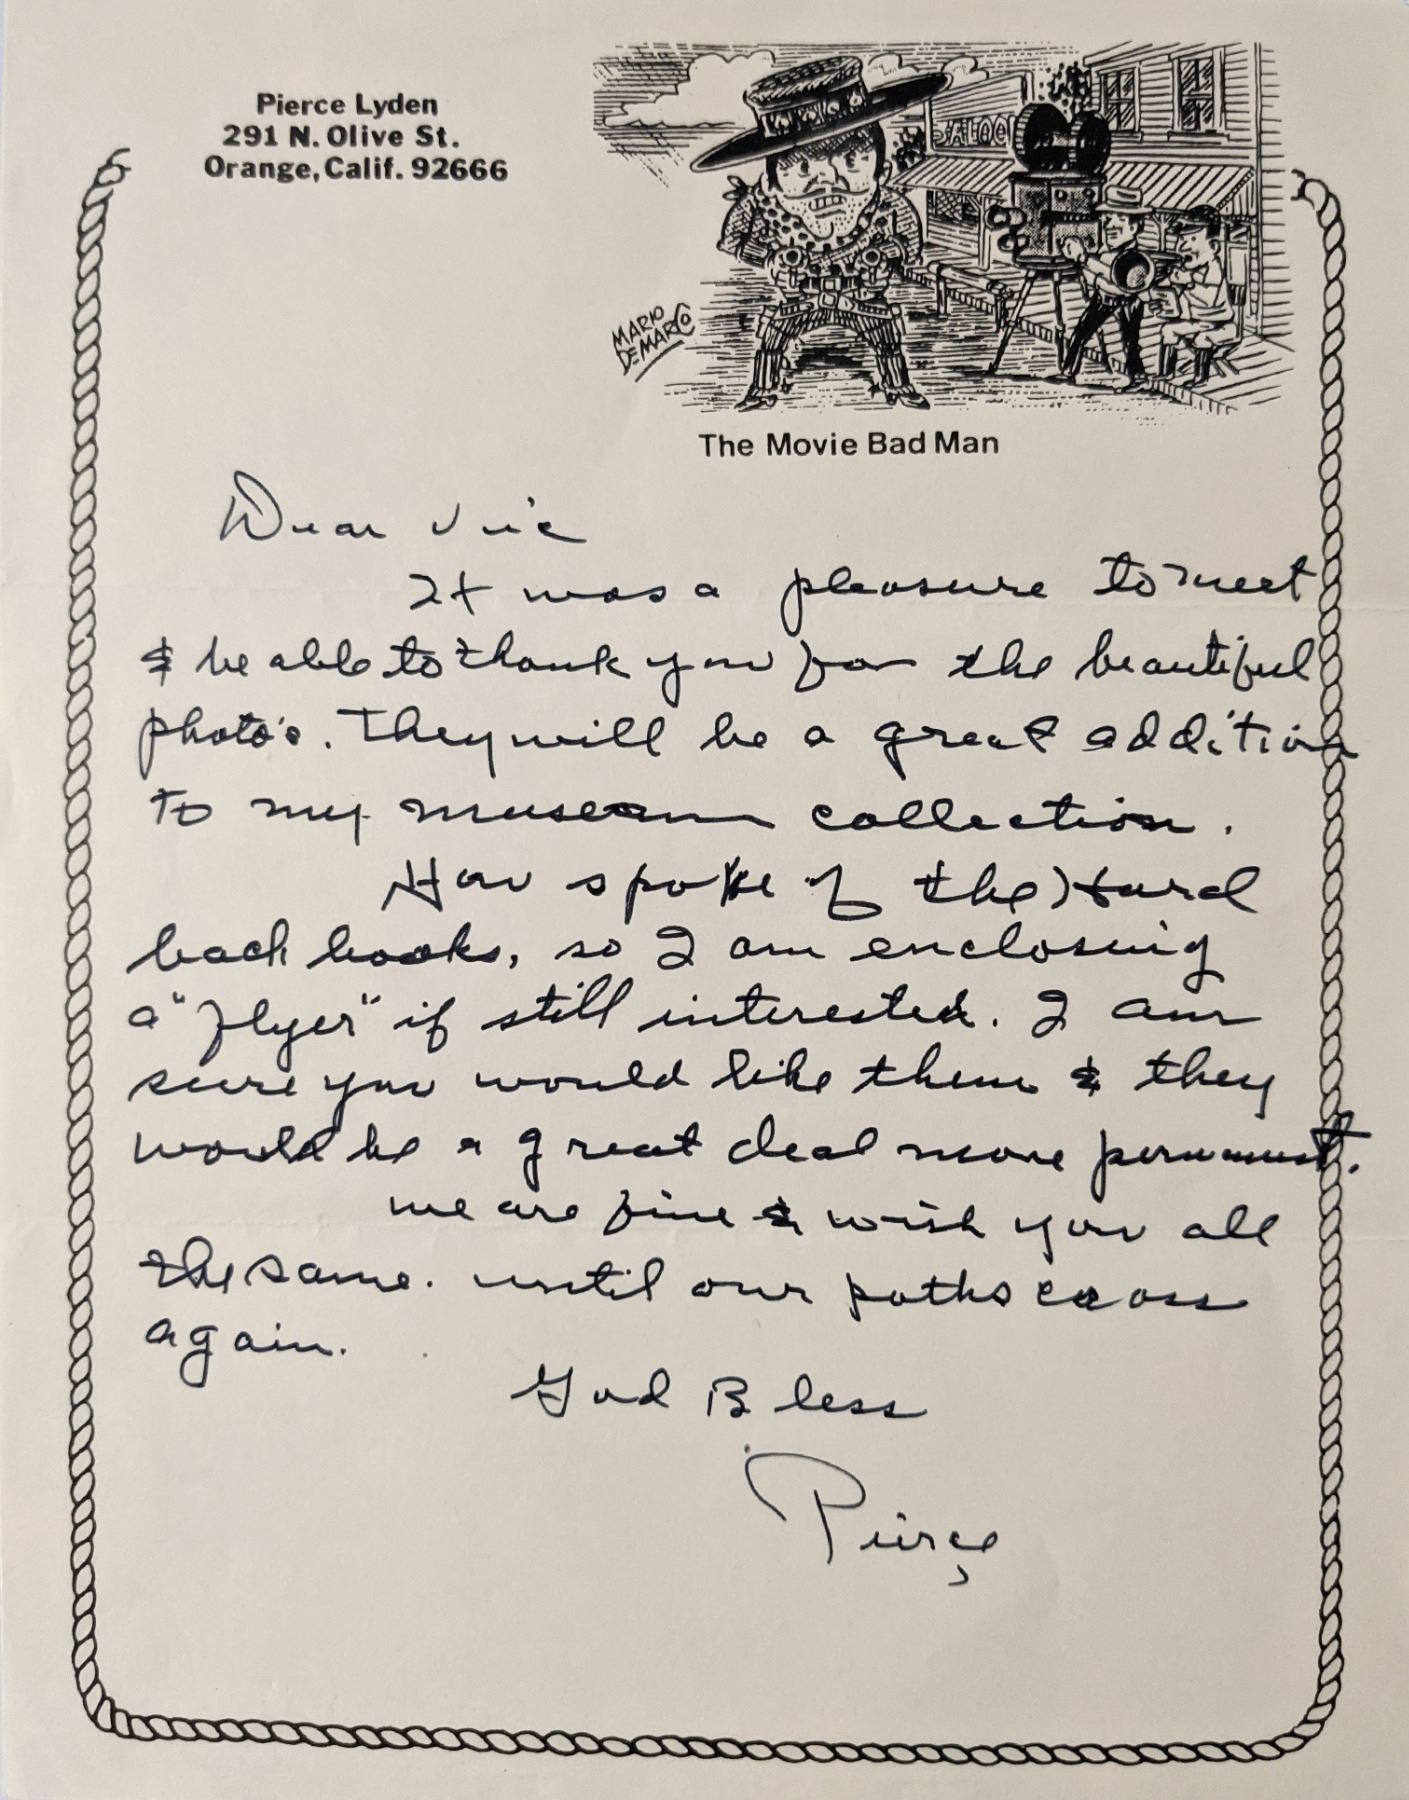 Pierce Lyden
291 N. Olive St.
Orange, Calif. 92666
SALOO
MARIO
DEMARCO
The Movie Bad Man
Dear Vic
It was a pleasure to meet
& be able to thank you for the beautiful
photo's. They will be a great addition
to my museum collection.
You spoke of the Hard
back books, so I am enclosing
a "flyer" if still interested. I am
sure you would like them & they
would be a great deal more permanent.
We are fine & wish you all
the same. until our paths cross
again.
God Bless
Pierce